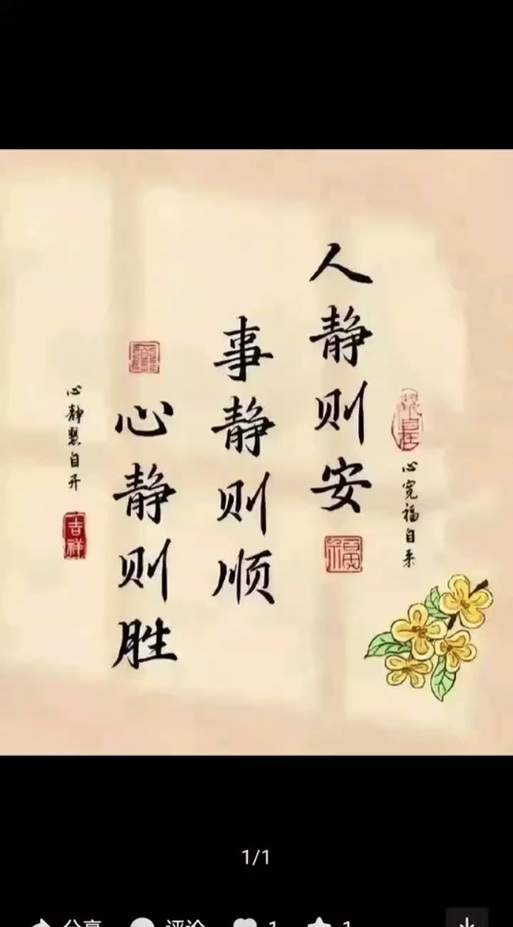 人静则安
事静则顺
心静则胜
心宽福自来
心静慧自开
吉祥
1/1
分享
评论
1
1